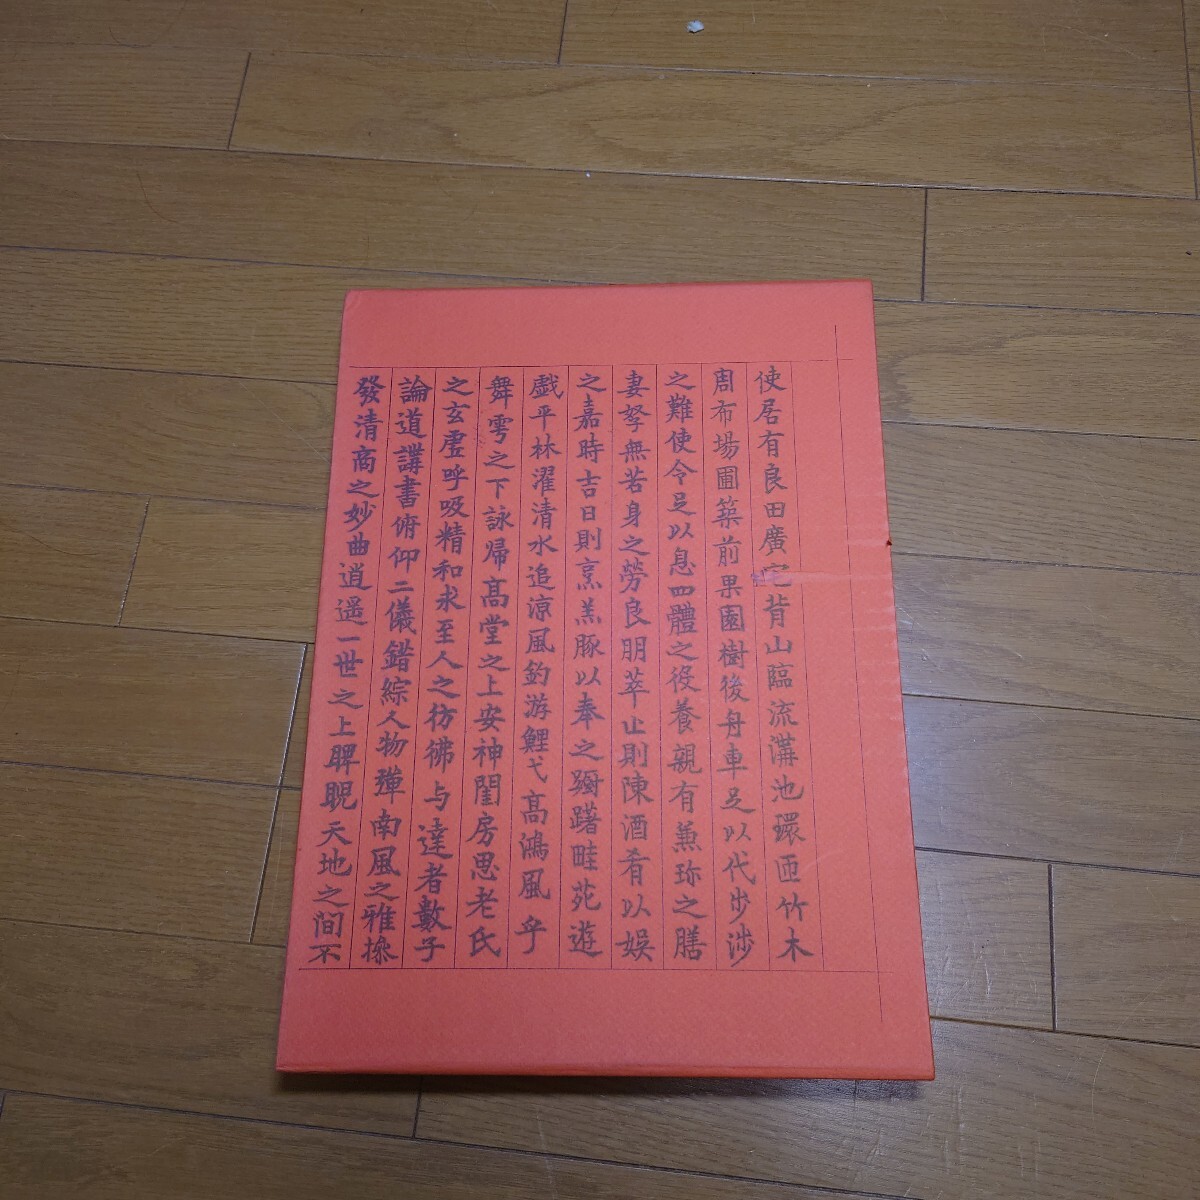 使居有良田廣宅背山臨流溝池環匝竹木
周布場圃築前果園樹後舟車足以代步涉
之難使令足以息四體之役養親有兼珎之膳
妻孥無苦身之勞良朋萃止則陳酒肴以娛
之嘉時吉日則烹羔豚以奉之躕躇畦苑遊
戯平林濯清水追涼風釣游鯉弋高鴻風乎
舞雩之下詠帰高堂之上安神閨房思老氏
之玄虗呼吸精和求至人之彷彿与達者數子
論道講書俯仰二儀錯綜人物彈南風之雅操
發清商之妙曲逍遥一世之上睥睨天地之间不